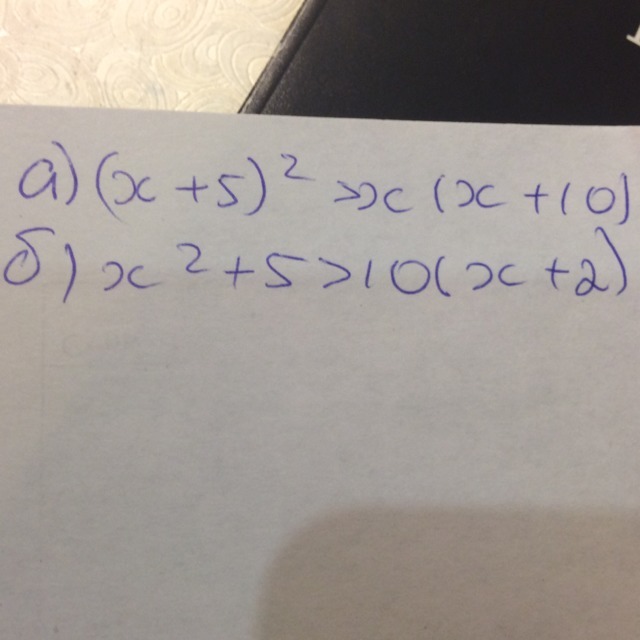 а) (x+5)² > x(x+10)
б) x²+5>10(x+2)